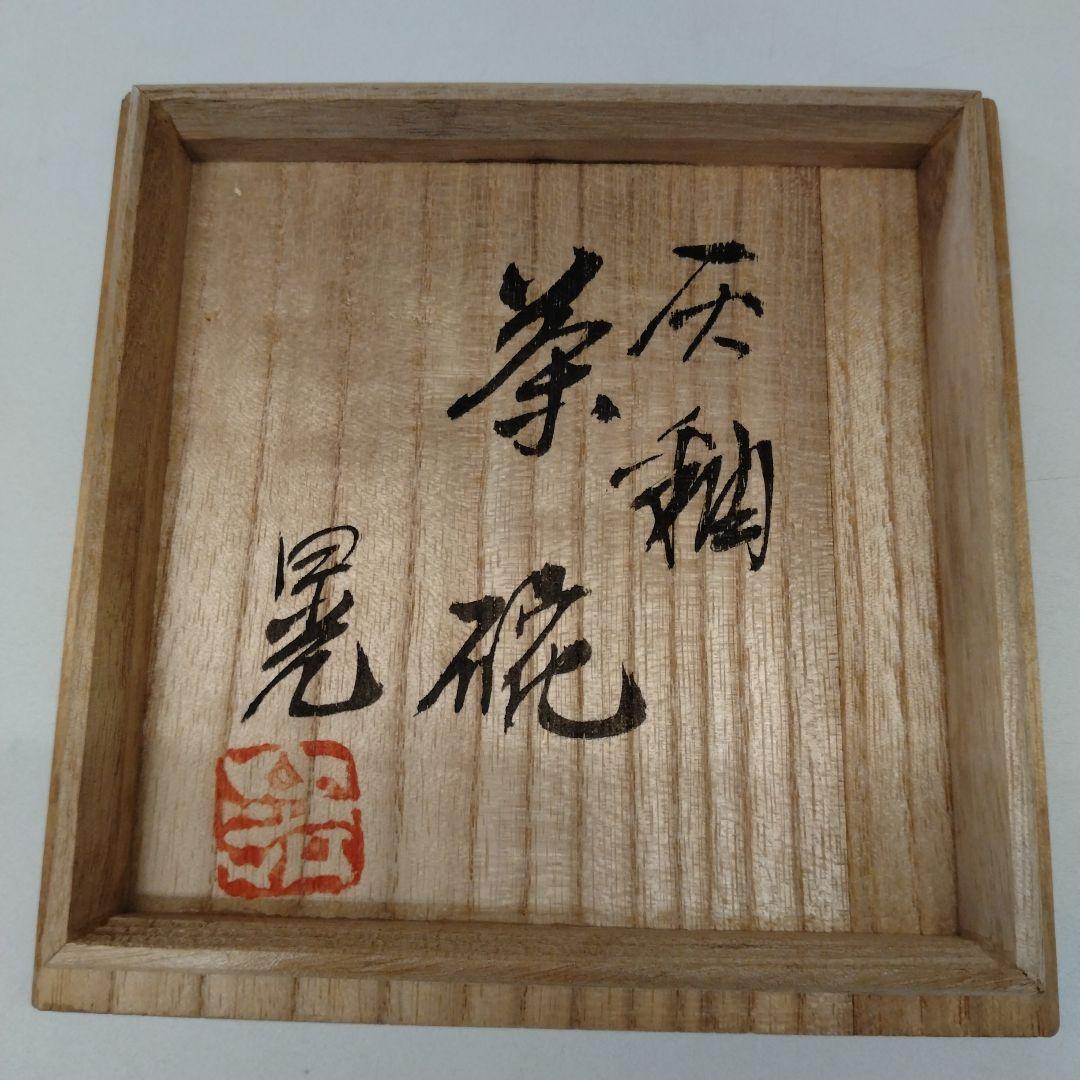 灰釉
茶碗
晃